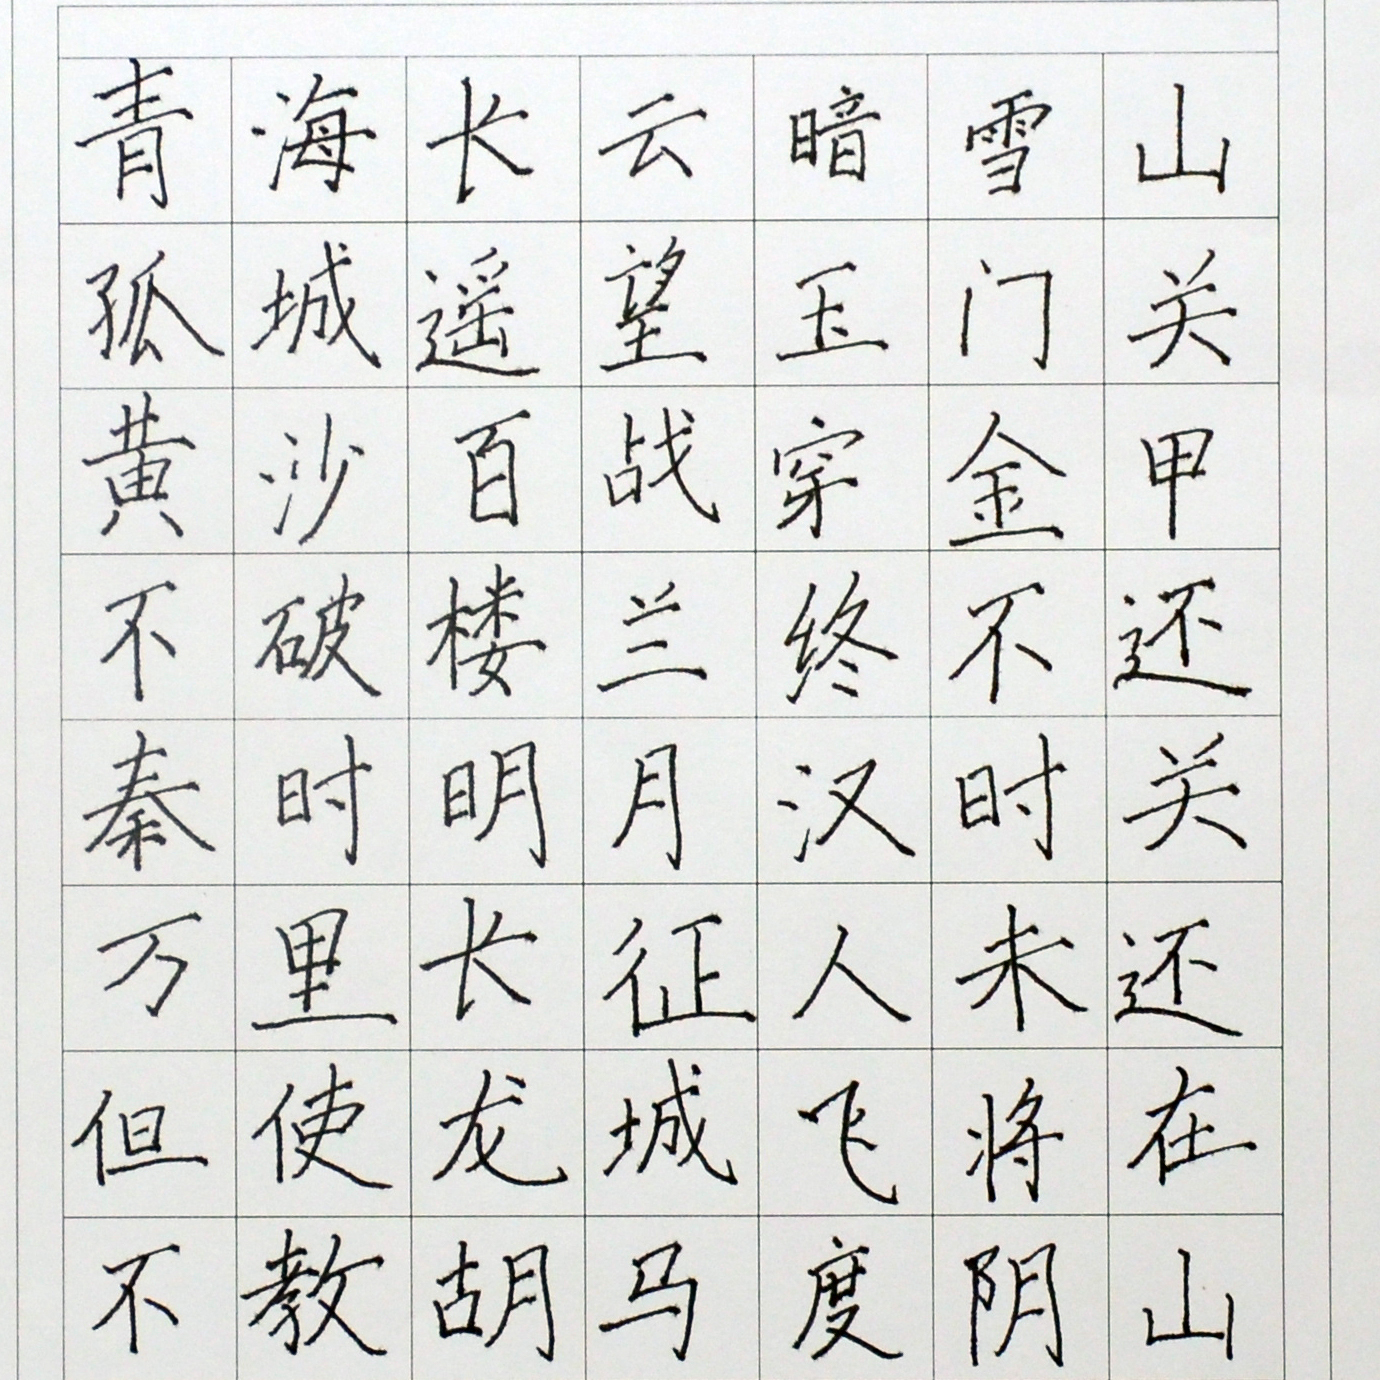 青海长云暗雪山
孤城遥望玉门关
黄沙百战穿金甲
不破楼兰终不还
秦时明月汉时关
万里长征人未还
但使龙城飞将在
不教胡马度阴山